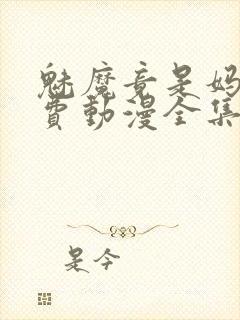 魅魔竟是妈
費動漫全集
是今